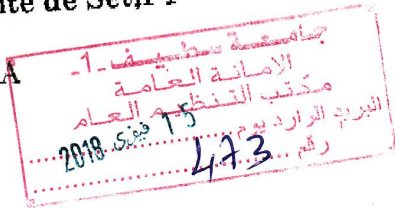 de Sétif 1
A
جامعة سطيف -1-
الأمانة العامة
مكتب التنظيم العام
البريد الوارد يوم 15 فيفري 2018
رقم 473